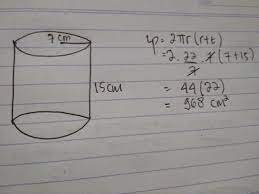 7 cm
15 cm
Lp = 2πr (r+t)
= 2. 22/7 . 7 (7+15)
= 44 (22)
= 968 cm²